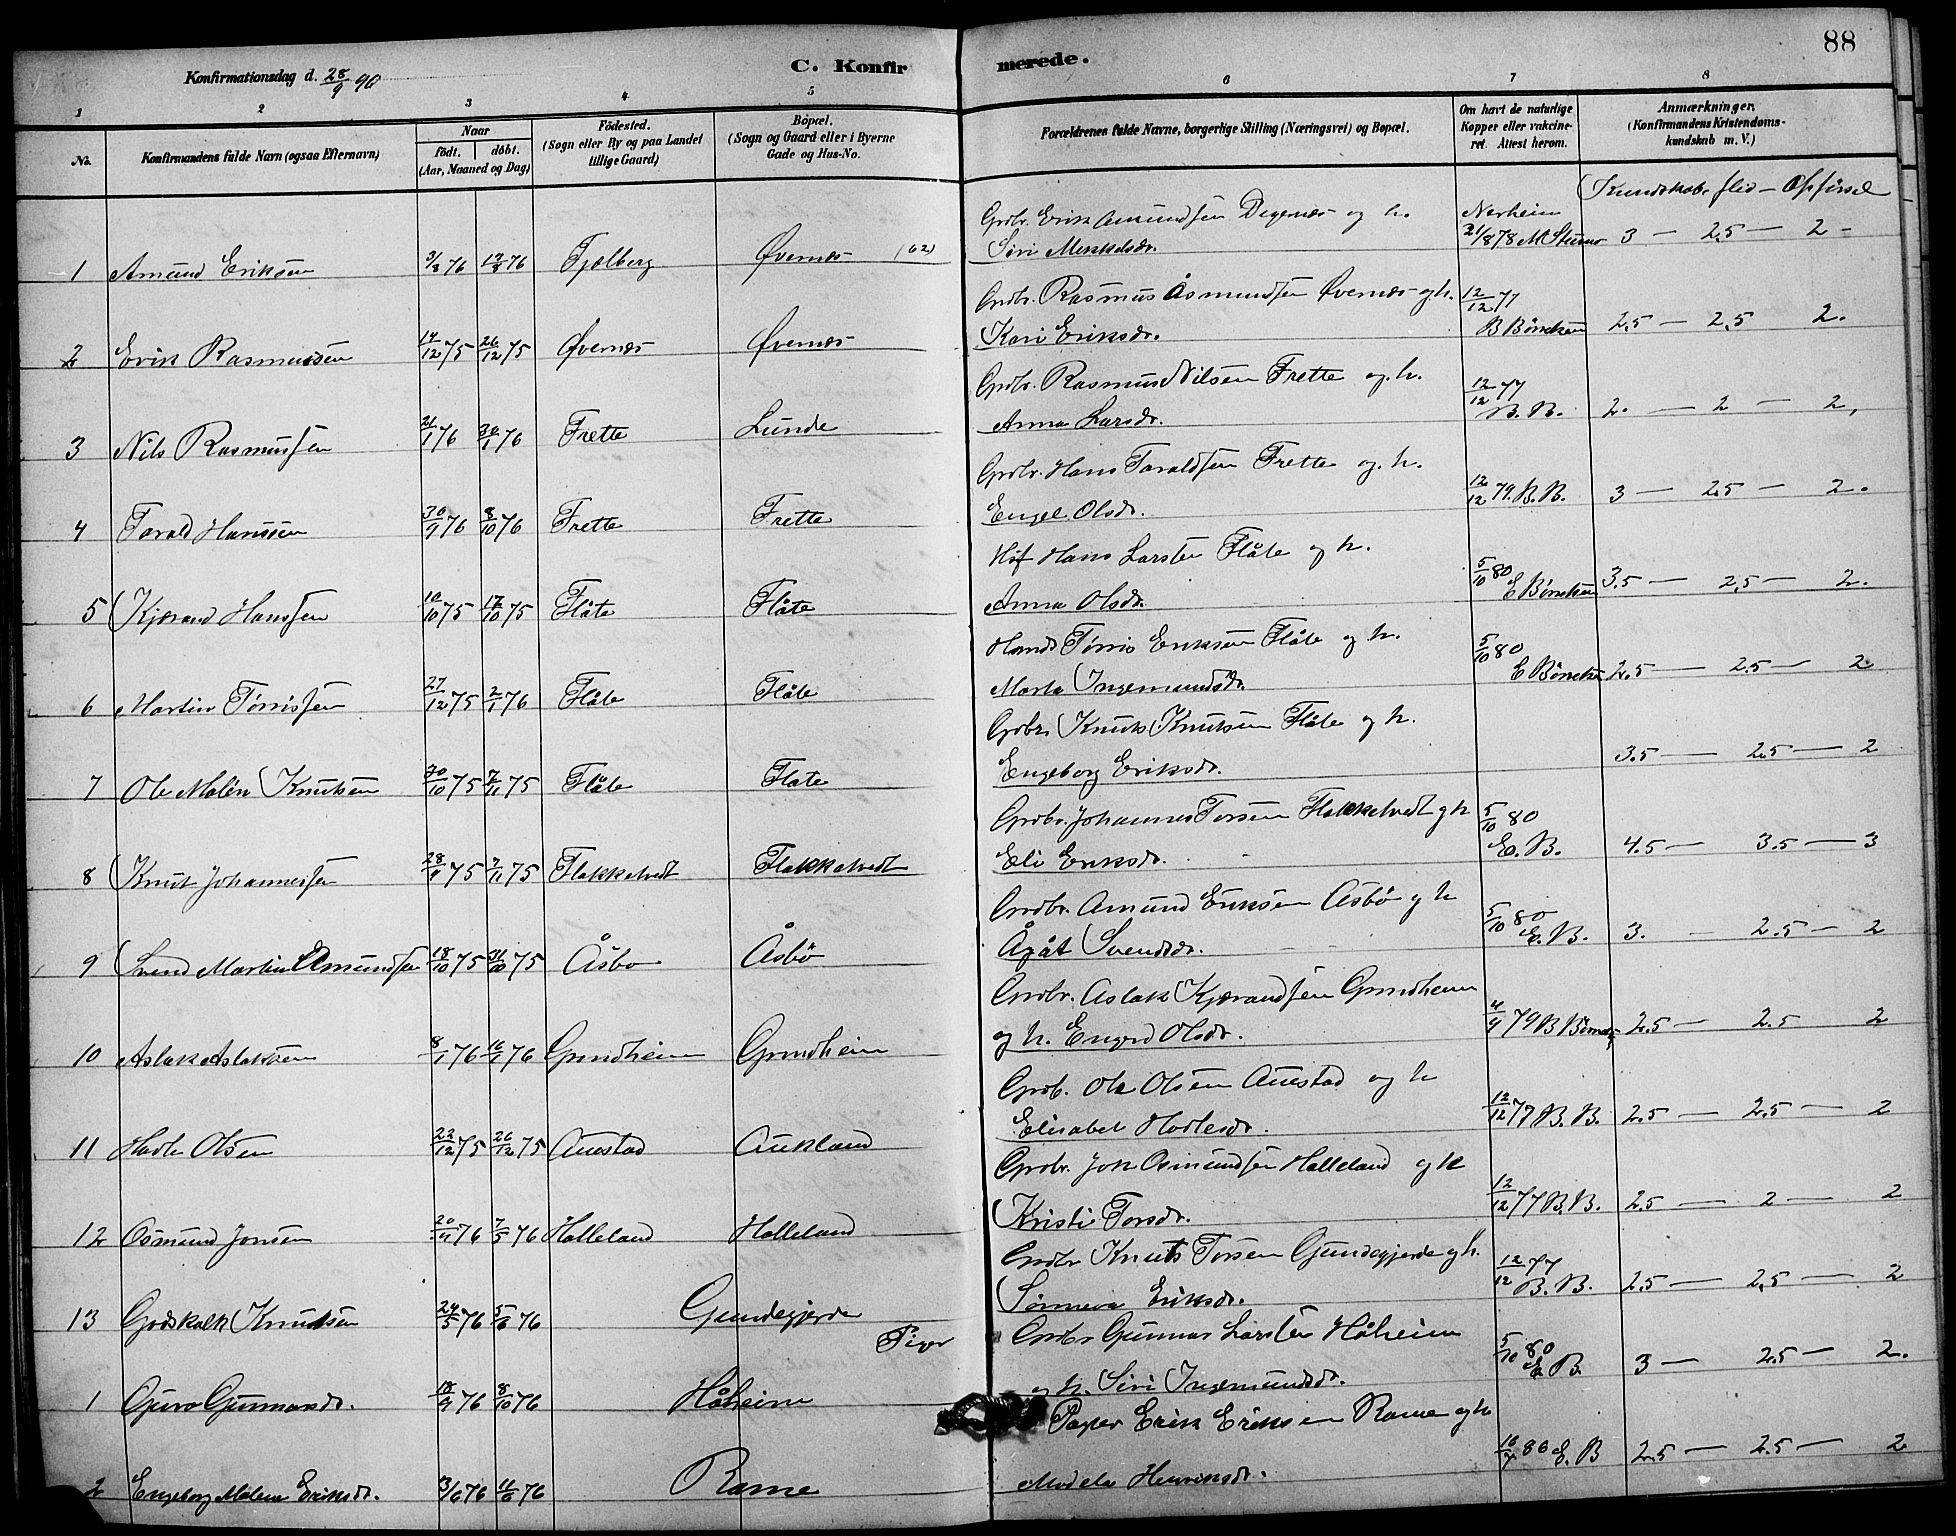 88
Konfirmationsdag d. 28/9 90
C. Konfirmerede.
1 2 3 4 5 6 7 8
No.
Konfirmandens fulde Navn (ogsaa Efternavn)
Naar
født. døbt.
(Aar, Maaned og Dag)
Fødested.
(Sogn eller By og paa Landet
tillige Gaard)
Bopæl.
(Sogn og Gaard eller i Byerne
Gade og Hus-No.
Forældrenes fulde Navne, borgerlige Stilling (Næringsvei) og Bopæl.
Om havt de naturlige
Kopper eller vakcine-
ret. Attest herom.
Anmærkninger.
(Konfirmandens Kristendoms-
kundskab m. V.)
Kundskab. flid - Opførsel
Grdbr. Erik Amundsen Degernæs og h. Nerheim
1 Amund Eriksen 3/8 76 Fjelberg Øvernæs (62) Siri Mikkelsdr. 21/8 78 3 - 2,5 - 2 -
Grdbr. Rasmus Åsmundsen Øvernæs og h. 12/12 77
2 Erik Rasmussen 14/12 75 26/12 75 Øvernæs Øvernæs Kari Eriksdr. 2,5 - 2,5 2.
Grdbr. Rasmus Nilsen Frette og h. 12/12 77
3 Nils Rasmussen 21/1 76 30/1 76 Frette Lunde Anna Larsdr. B. B. 2. - 2 - 2,
Grdbr. Hans Taraldsen Frette og h.
4 Tarald Hanssen 30/9 76 8/10 76 Frette Frette Engel Olsdr. 12/12 79. B. B. 3 - 2.5 - 2.
Hans Larsen Flåte og h. 5/10 80
5 Kjærand Hanssen 10/10 75 17/10 75 Flåte Flåte Anna Olsdr. 3.5 - 2,5 - 2.
Tørris Eriksen Flåte og h. 5/10 80
6 Martin Tørrissen 27/12 75 2/1 76 Flåte Flåte Marta Ingemundsdr. 2.5 - 2.5 - 2.
Grdbr. Knut Knutsen Flåte og h.
7 Ole Knutsen 30/10 75 7/11 75 Flåte Flate Engeborg Eriksdr. 3.5 - 2.5 - 2
Grdbr. Johannes Torsen Flakketvedt og h 5/10 80
8 Knut Johannessen 75 7/11 75 Flakketvedt Flakketvedt Eli Eriksdr. E. B. 4.5 - 3.5 - 3
Grdbr. Amund Eriksen Åsbø og h
9 Svend Martin Amundsen 18/10 75 31/10 75 Åsbo Åsbø Ågåt Svendsdr. 5/10 80 E. B. 3. - 2.5 - 2
Grdbr. Aslak Kjærandsen Grindheim
10 Aslak Aslaksen 8/1 76 16/1 76 Grindheim Grindheim og h. Engerd Olsdr. 79 2.5 - 2.5 2
Grdb. Ole Olsen Auestad og h
11 Hadle Olsen 22/12 75 26/12 75 Auestad Aukland Elisabet Hadlesdr. 12/12 77 B. B. 2.5 - 2.5 - 2
Grdbr. Jon Osmundsen Halleland og h
12 Osmund Jonsen 76 7/5 76 Halleland Halleland Kristi Torsdr. 12/12 77 B. B. 2.5 - 2 - 2
Grdbr Knut Torsen Gundegjerde og h. 12/12 77
13 Godskalk Knutsen 24/5 76 5/6 76 Gundegjerde Sønneva Eriksdr. B. B. 2.5 - 2.5 - 2
Piger
Grdbr Gunnar Larsen Håheim
1 Guro Gunnarsdr. 18/9 76 8/10 76 Håheim og h. Siri Ingemundsdr. 5/10 80 E. B. 3 - 2.5 - 2.
Erik Eriksen Rame og h
2 Engeborg Malene Eriksdr. 3/6 76 11/6 76 Rame Madela Henriksdr. 80 E. B 2.5 - 2.5 - 2